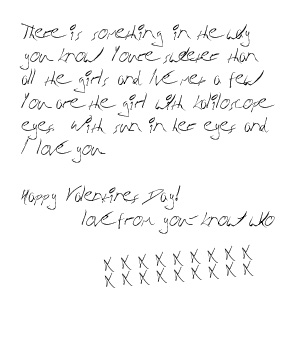 There is something in the way
you know You're sweeter than
all the girls and I've met a few
You are the girl with kaliloscope
eyes with sun in her eyes and
I love you
Happy Valentines Day!
love from you-know who
X X X X X X X X X
X X X X X X X X X